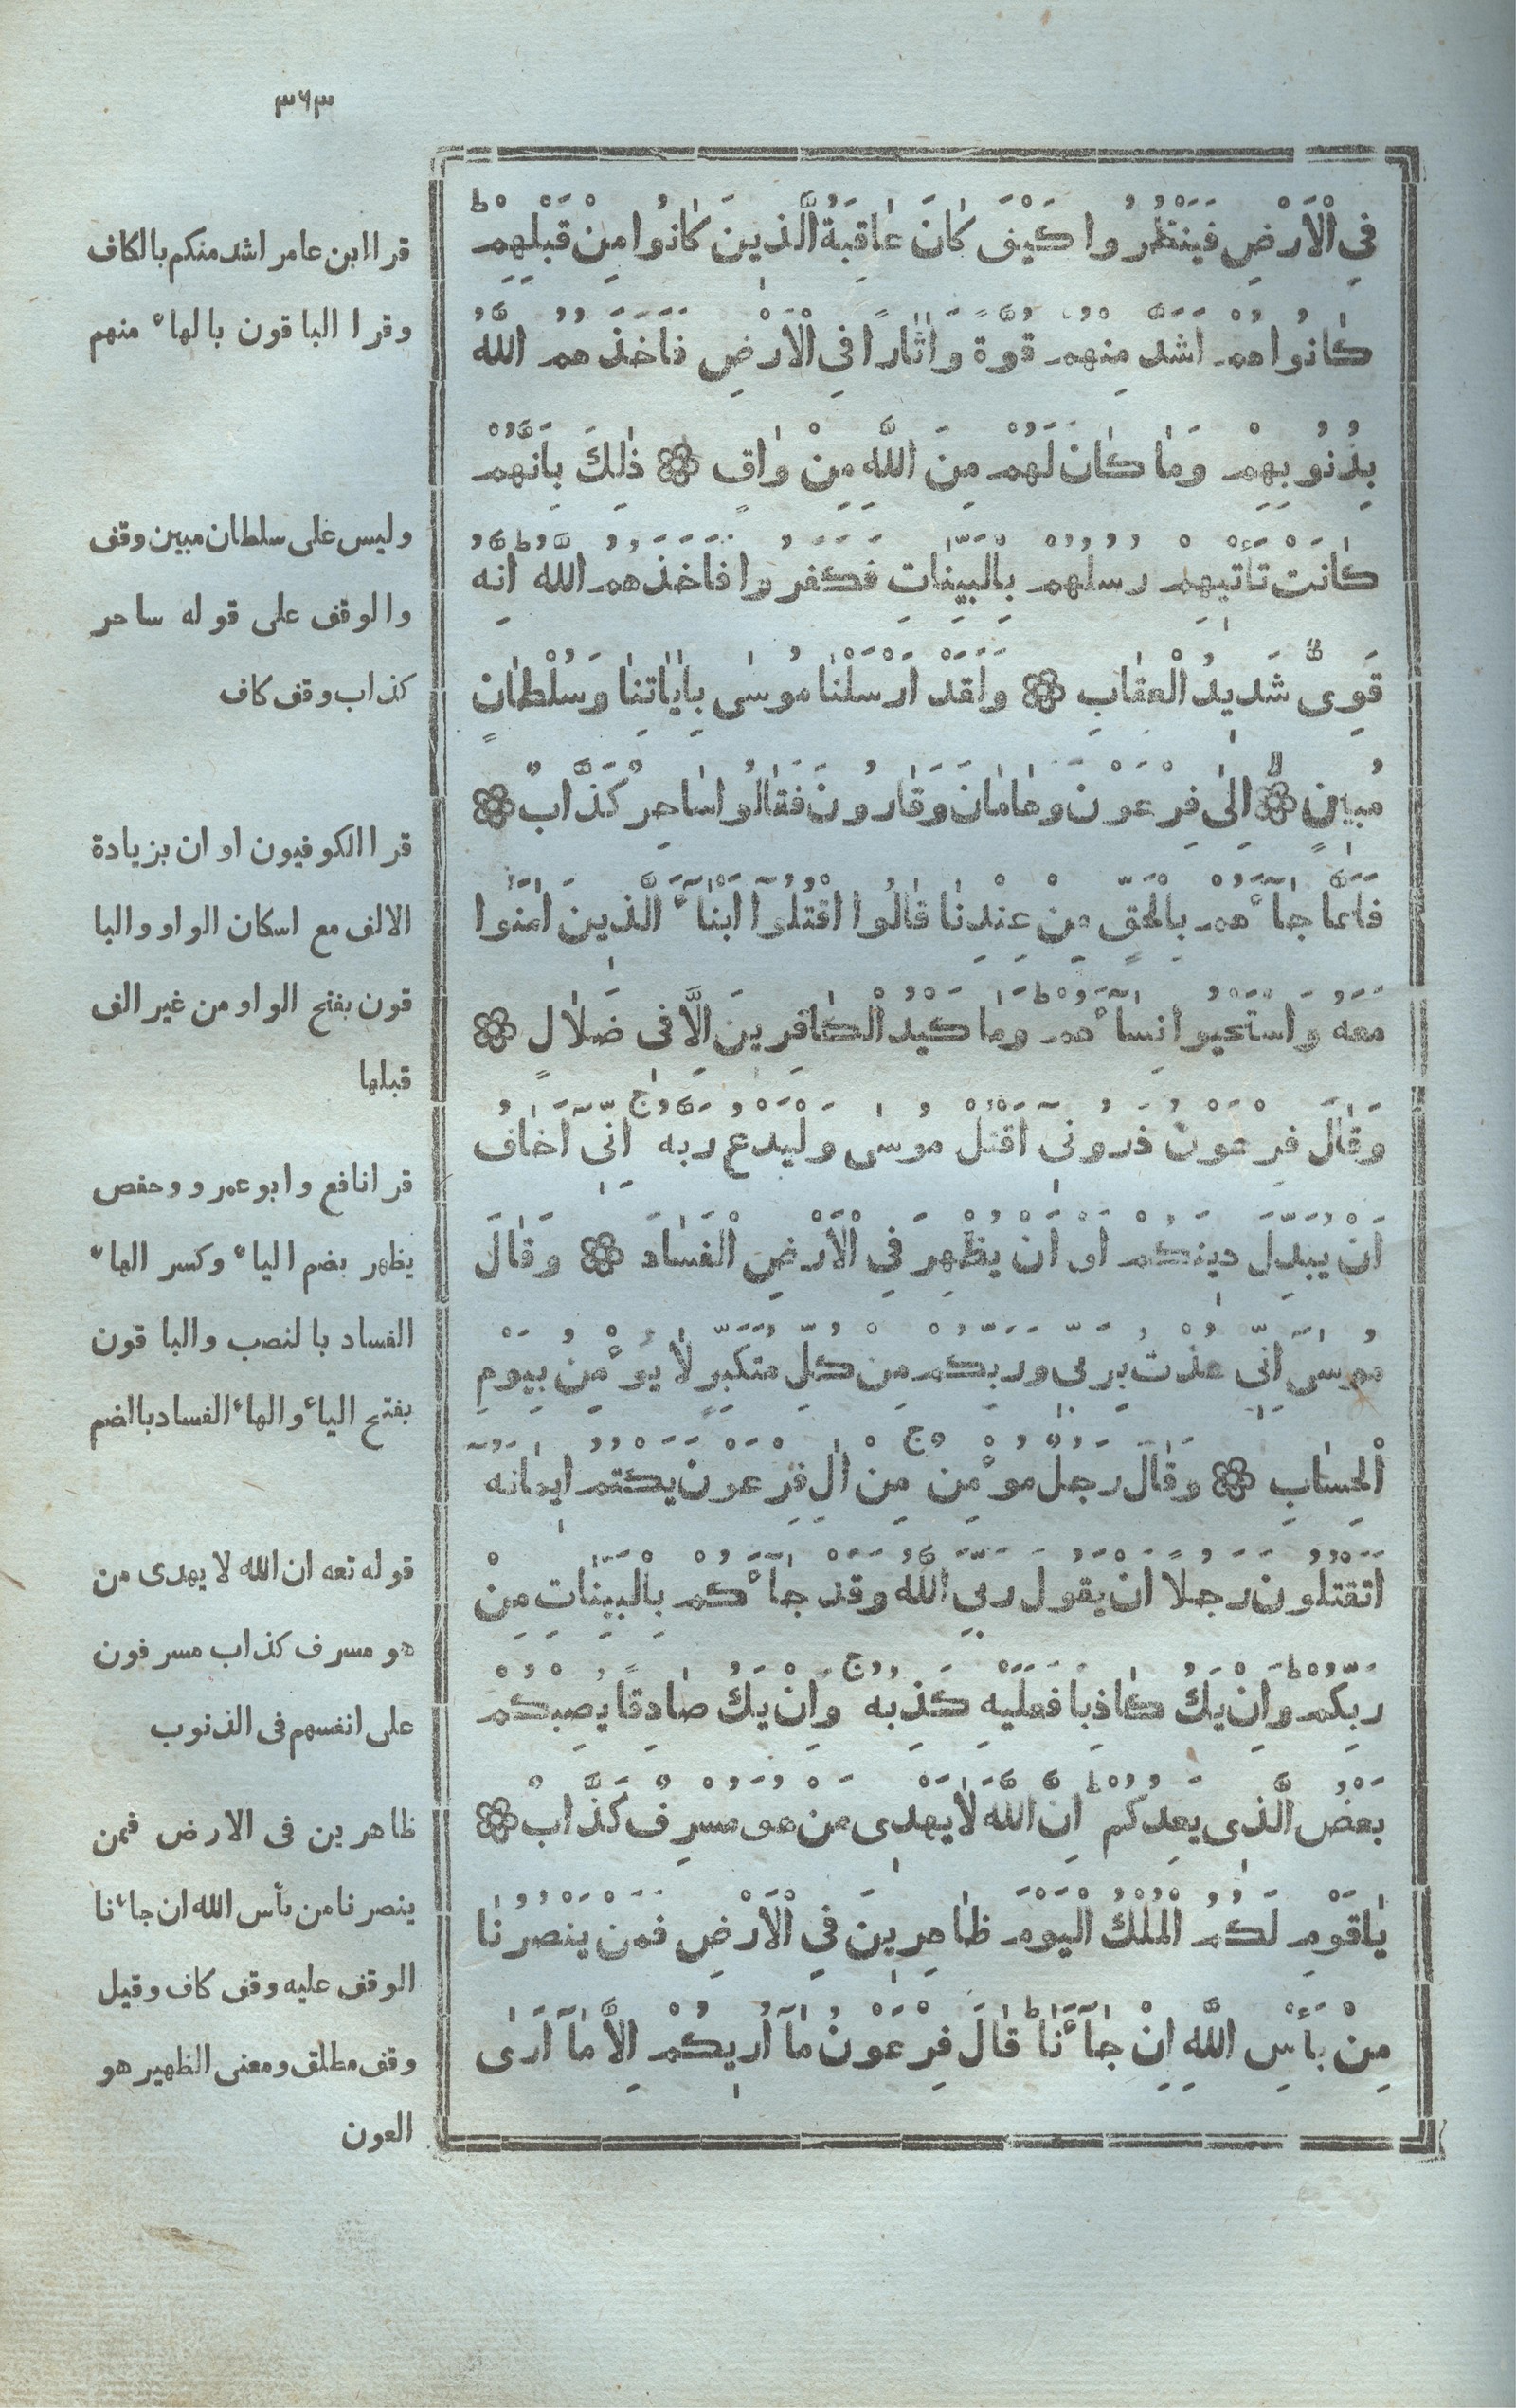 ٣٦٣
فِى الْاَرْضِ فَيَنْظُرُوا كَيْفَ كَانَ عَاقِبَةُ الَّذِينَ كَانُوا مِنْ قَبْلِهِمْ ط
كَانُوا هُمْ اَشَدَّ مِنْهُمْ قُوَّةً وَاٰثَارًا فِى الْاَرْضِ فَاَخَذَهُمُ اللّٰهُ
بِذُنُوبِهِمْ وَمَا كَانَ لَهُمْ مِنَ اللّٰهِ مِنْ وَاقٍ ۞ ذٰلِكَ بِاَنَّهُمْ
كَانَتْ تَأْتِيهِمْ رُسُلُهُمْ بِالْبَيِّنَاتِ فَكَفَرُوا فَاَخَذَهُمُ اللّٰهُ ط اِنَّهُ
قَوِىٌّ شَدِيدُ الْعِقَابِ ۞ وَلَقَدْ اَرْسَلْنَا مُوسٰى بِاٰيَاتِنَا وَسُلْطَانٍ
مُبِينٍ ۞ لا اِلٰى فِرْعَوْنَ وَهَامَانَ وَقَارُونَ فَقَالُوا سَاحِرٌ كَذَّابٌ ۞
فَلَمَّا جَآءَهُمْ بِالْحَقِّ مِنْ عِنْدِنَا قَالُوا اقْتُلُوٓا اَبْنَآءَ الَّذِينَ اٰمَنُوا
مَعَهُ وَاسْتَحْيُوا نِسَآءَهُمْ ط وَمَا كَيْدُ الْكَافِرِينَ اِلَّا فِى ضَلَالٍ ۞
وَقَالَ فِرْعَوْنُ ذَرُونِىٓ اَقْتُلْ مُوسٰى وَلْيَدْعُ رَبَّهُ ج اِنِّىٓ اَخَافُ
اَنْ يُبَدِّلَ دِينَكُمْ اَوْ اَنْ يُظْهِرَ فِى الْاَرْضِ الْفَسَادَ ۞ وَقَالَ
مُوسٰىٓ اِنِّى عُذْتُ بِرَبِّى وَرَبِّكُمْ مِنْ كُلِّ مُتَكَبِّرٍ لَا يُؤْمِنُ بِيَوْمِ
الْحِسَابِ ۞ وَقَالَ رَجُلٌ مُؤْمِنٌ ج مِنْ اٰلِ فِرْعَوْنَ يَكْتُمُ اِيمَانَهُٓ
اَتَقْتُلُونَ رَجُلًا اَنْ يَقُولَ رَبِّىَ اللّٰهُ وَقَدْ جَآءَكُمْ بِالْبَيِّنَاتِ مِنْ
رَبِّكُمْ ط وَاِنْ يَكُ كَاذِبًا فَعَلَيْهِ كَذِبُهُ ج وَاِنْ يَكُ صَادِقًا يُصِبْكُمْ
بَعْضُ الَّذِى يَعِدُكُمْ ط اِنَّ اللّٰهَ لَا يَهْدِى مَنْ هُوَ مُسْرِفٌ كَذَّابٌ ۞
يَاقَوْمِ لَكُمُ الْمُلْكُ الْيَوْمَ ظَاهِرِينَ فِى الْاَرْضِ فَمَنْ يَنْصُرُنَا
مِنْ بَأْسِ اللّٰهِ اِنْ جَآءَنَا ط قَالَ فِرْعَوْنُ مَآ اُرِيكُمْ اِلَّا مَآ اَرٰى
قرا ابن عامر اشد منكم بالكاف
وقرا الباقون بالهاء منهم
وليس على سلطان مبين وقف
والوقف على قوله ساحر
كذاب وقف كاف
قرا الكوفيون او ان بزيادة
الالف مع اسكان الواو والبا
قون بفتح الواو من غير الف
قبلها
قرا نافع وابو عمرو وحفص
يظهر بضم الياء وكسر الهاء
الفساد بالنصب والباقون
بفتح الياء والهاء الفساد بالضم
قوله تعه ان الله لا يهدى من
هو مسرف كذاب مسرفون
على انفسهم فى الذنوب
ظاهرين فى الارض فمن
ينصرنا من بأس الله ان جاءنا
الوقف عليه وقف كاف وقيل
وقف مطلق ومعنى الظهير هو
العون